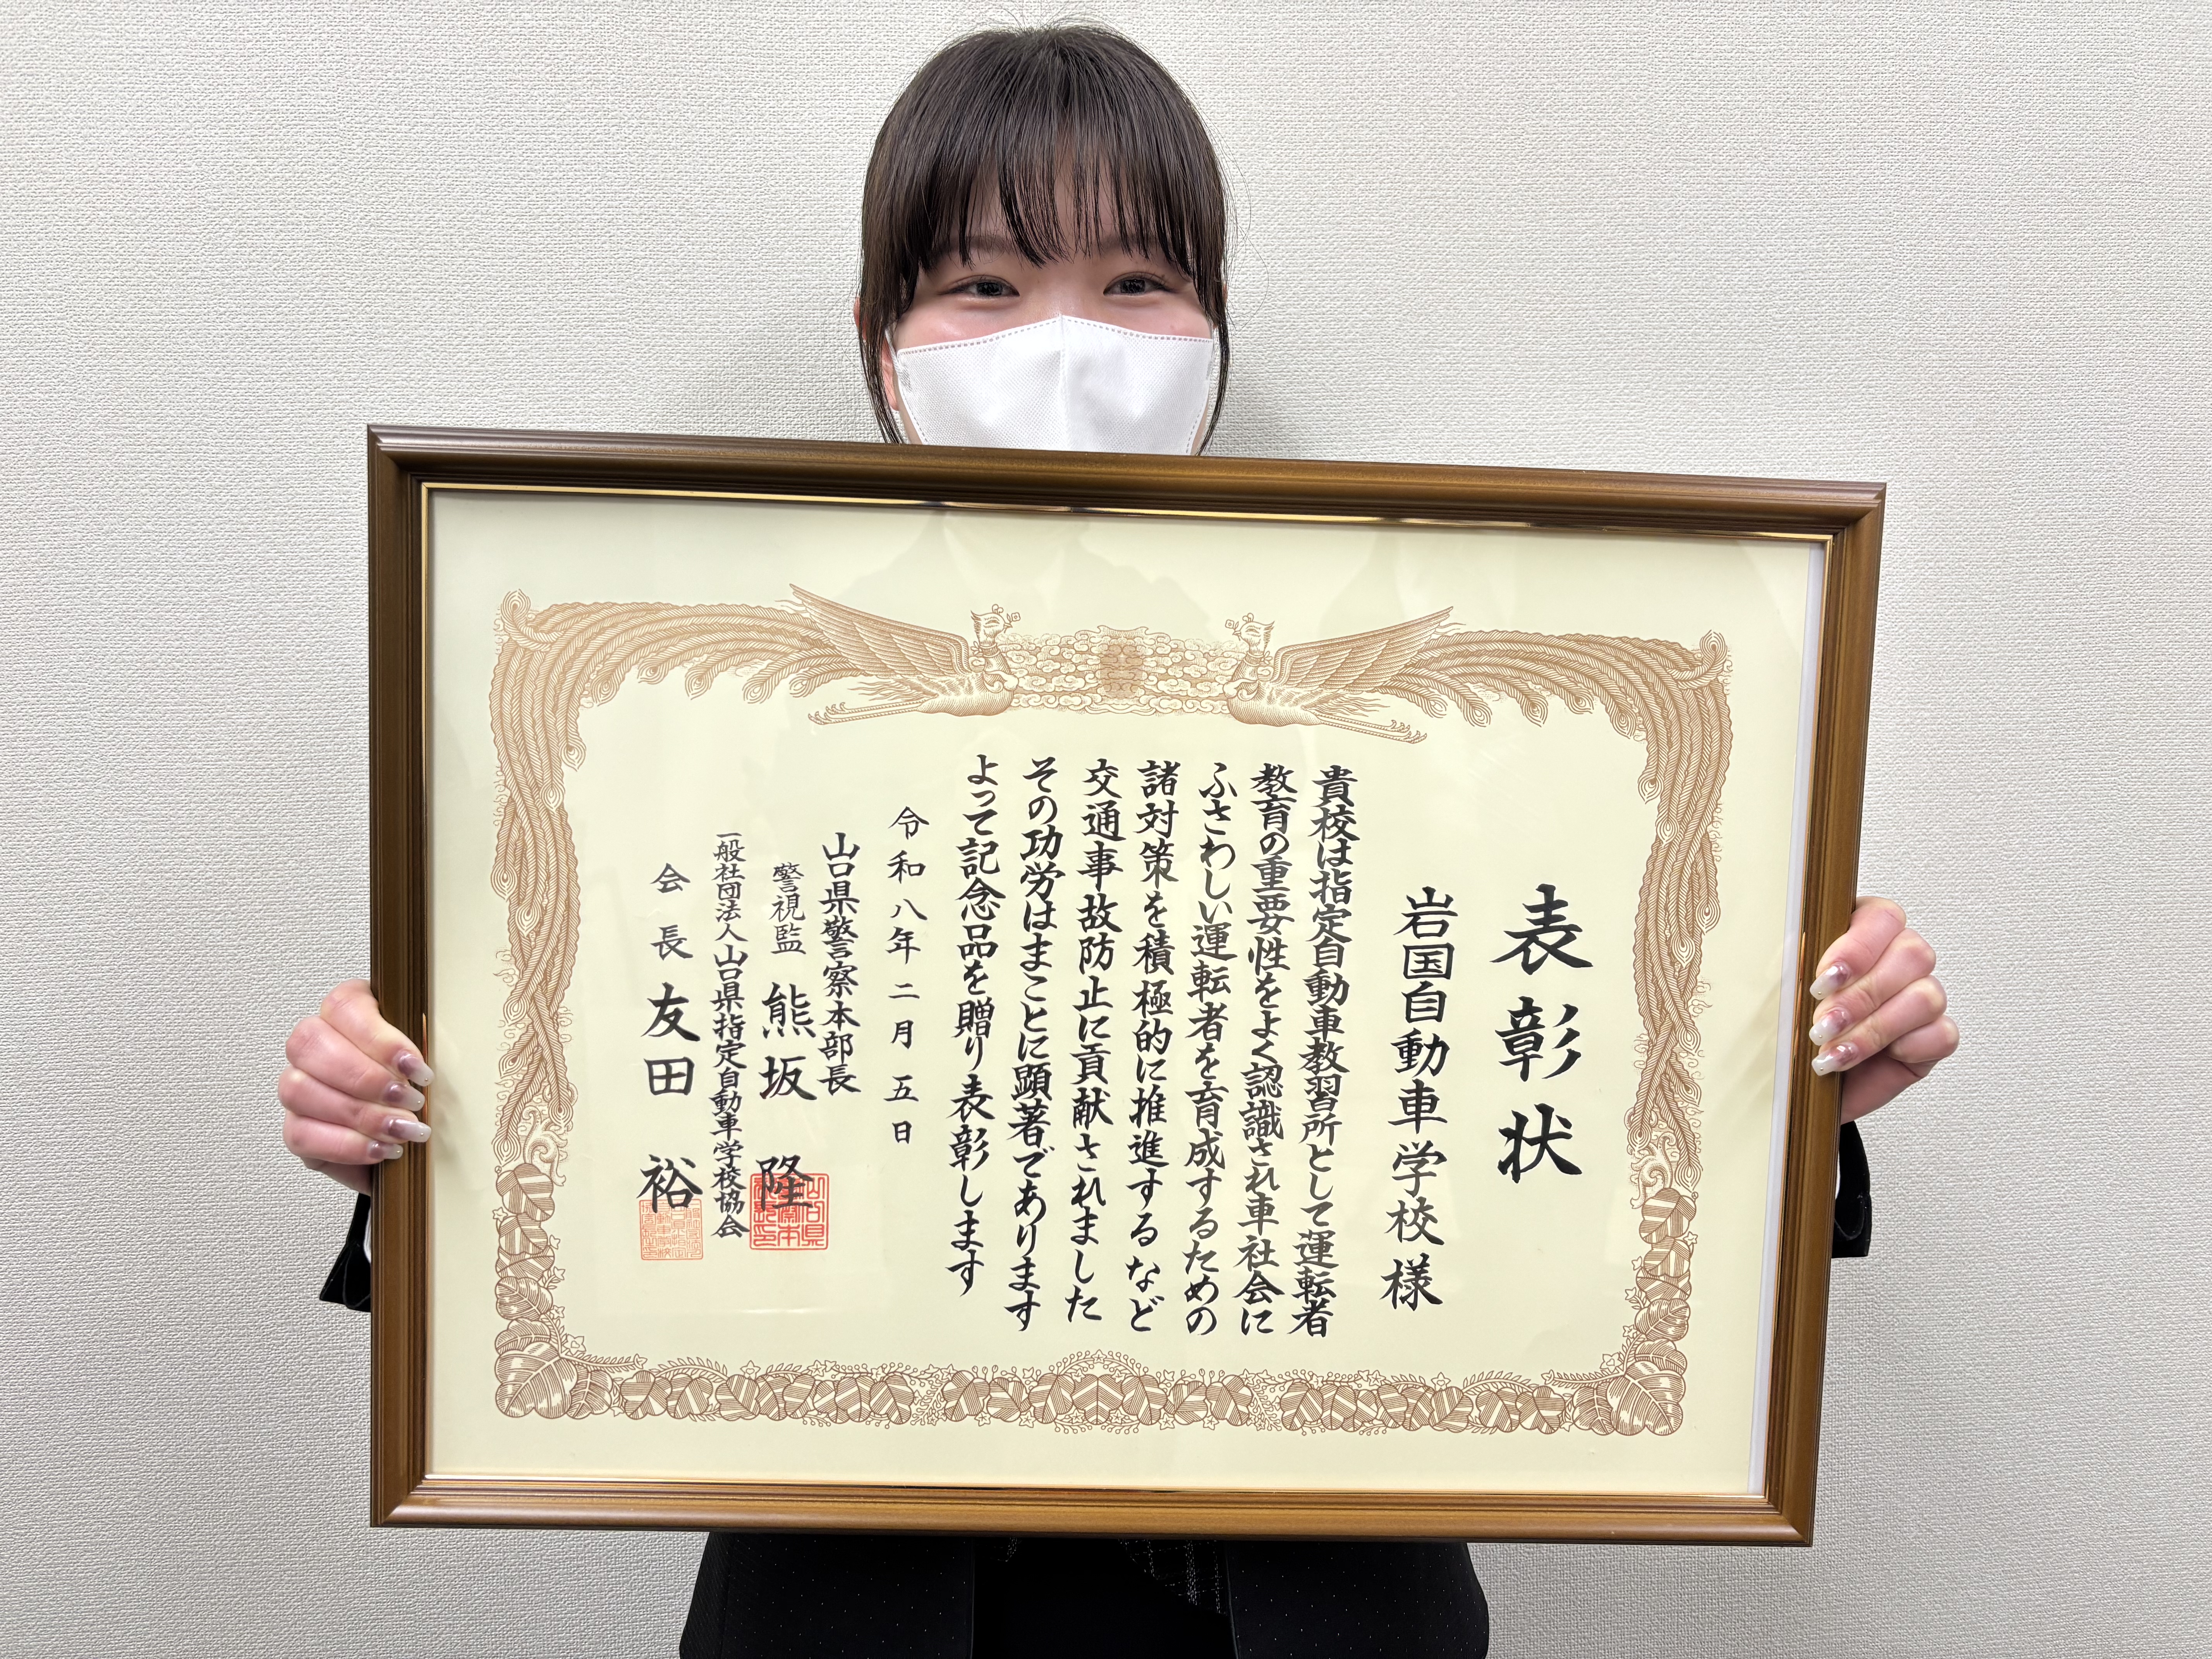 表彰状
岩国自動車学校様
貴校は指定自動車教習所として運転者
教育の重要性をよく認識され車社会に
ふさわしい運転者を育成するための
諸対策を積極的に推進するなど
交通事故防止に貢献されました
その功労はまことに顕著であります
よって記念品を贈り表彰します
令和八年二月五日
山口県警察本部長
警視監 熊坂 隆
一般社団法人山口県指定自動車学校協会
会長 友田 裕